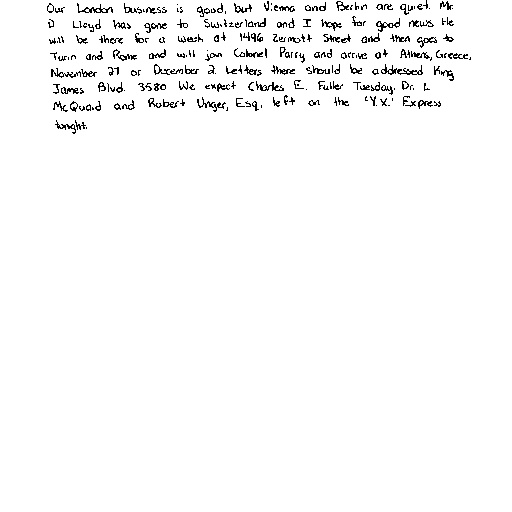 Our London business is good, but Vienna and Berlin are quiet. Mr.
D. Lloyd has gone to Switzerland and I hope for good news. He
will be there for a week at 1496 Zermott Street and then goes to
Turin and Rome and will join Colonel Parry and arrive at Athens, Greece,
November 27 or December 2. Letters there should be addressed King
James Blvd. 3580. We expect Charles E. Fuller Tuesday. Dr. L.
McQuaid and Robert Unger, Esq. left on the 'Y.X.' Express
tonight.